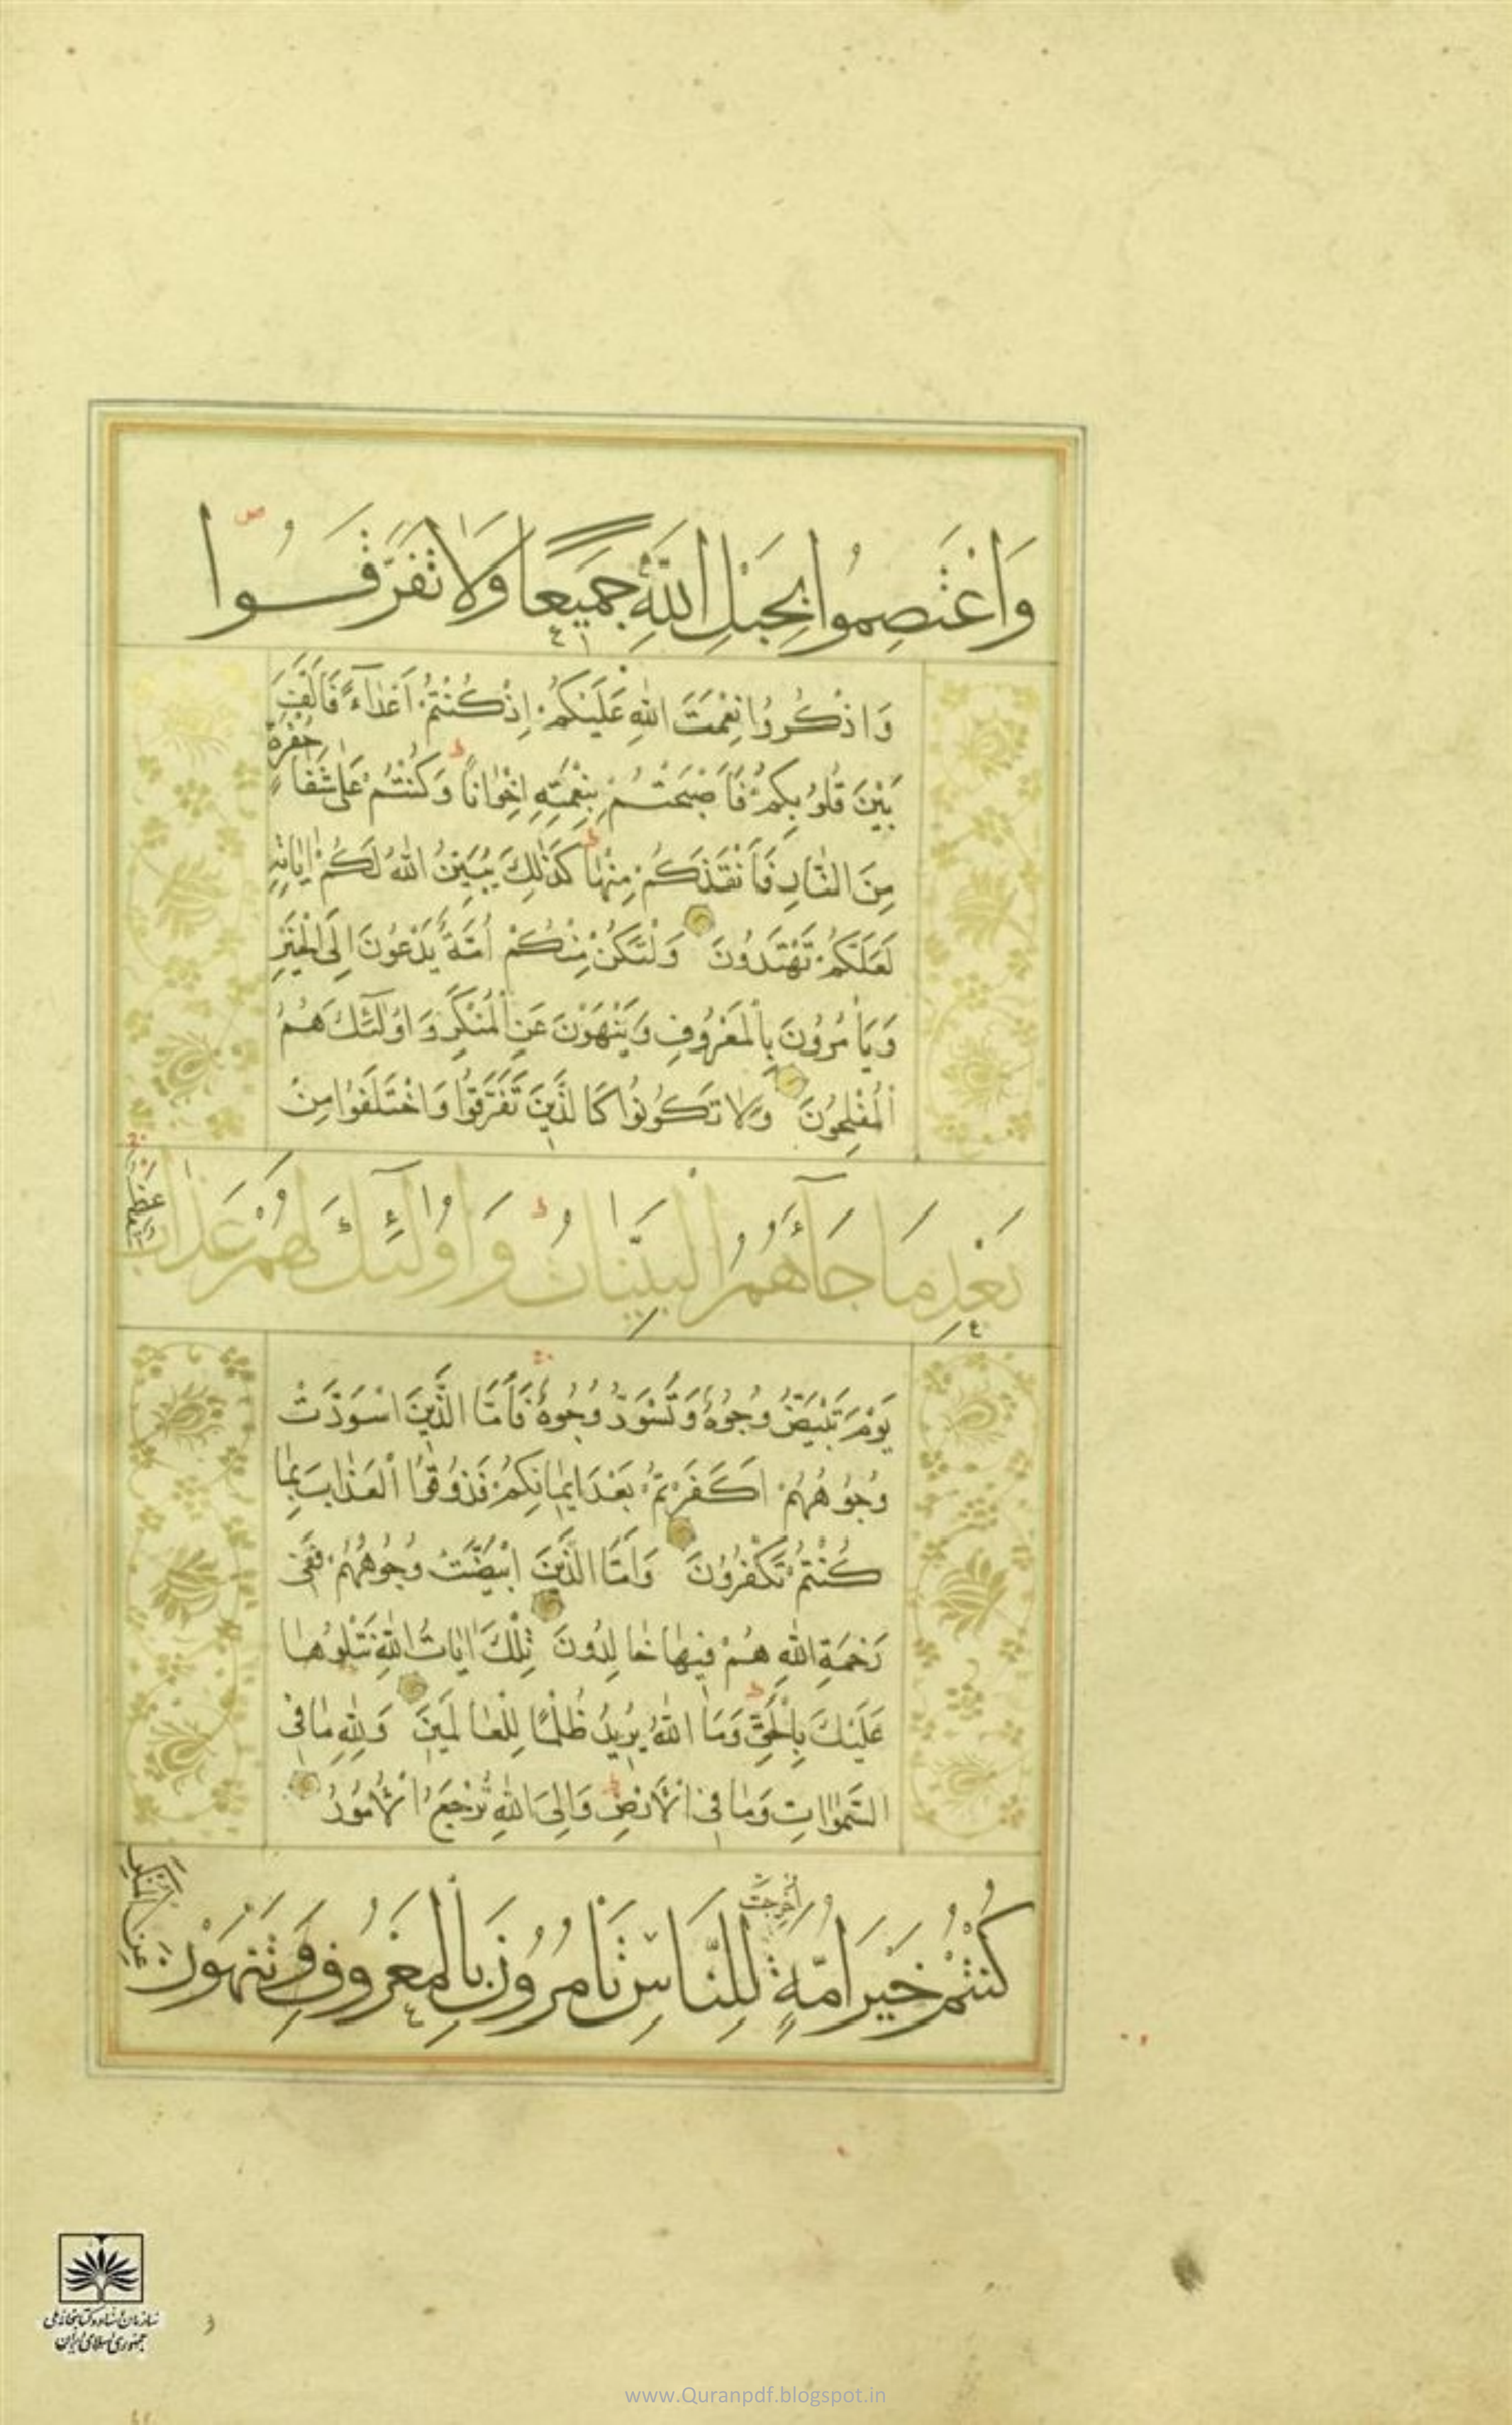 وَاعْتَصِمُوا بِحَبْلِ اللَّهِ جَمِيعًا وَلَا تَفَرَّقُوا
وَاذْكُرُوا نِعْمَتَ اللهِ عَلَيْكُمْ اِذْ كُنْتُمْ اَعْدَآءً فَاَلَّفَ
بَيْنَ قُلُوبِكُمْ فَاَصْبَحْتُمْ بِنِعْمَتِهِ اِخْوٰانًا وَكُنْتُمْ عَلىٰ شَفٰا حُفْرَةٍ
مِنَ النّٰارِ فَاَنْقَذَكُمْ مِنْهٰا كَذٰلِكَ يُبَيِّنُ اللهُ لَكُمْ اٰيٰاتِهِ
لَعَلَّكُمْ تَهْتَدُونَ وَلْتَكُنْ مِنْكُمْ اُمَّةٌ يَدْعُونَ اِلَى الْخَيْرِ
وَيَأْمُرُونَ بِالْمَعْرُوفِ وَيَنْهَوْنَ عَنِ الْمُنْكَرِ وَاُولٰٓئِكَ هُمُ
الْمُفْلِحُونَ وَلٰا تَكُونُوا كَالَّذِينَ تَفَرَّقُوا وَاخْتَلَفُوا مِنْ
بَعْدِ مَا جَآءَهُمُ الْبَيِّنَاتُ وَاُولٰٓئِكَ لَهُمْ عَذَابٌ عَظِيمٌ
يَوْمَ تَبْيَضُّ وُجُوهٌ وَتَسْوَدُّ وُجُوهٌ فَاَمَّا الَّذِينَ اسْوَدَّتْ
وُجُوهُهُمْ اَكَفَرْتُمْ بَعْدَ اِيمٰانِكُمْ فَذُوقُوا الْعَذٰابَ بِمٰا
كُنْتُمْ تَكْفُرُونَ وَاَمَّا الَّذِينَ ابْيَضَّتْ وُجُوهُهُمْ فَفِى
رَحْمَةِ اللهِ هُمْ فِيهٰا خٰالِدُونَ تِلْكَ اٰيٰاتُ اللهِ نَتْلُوهٰا
عَلَيْكَ بِالْحَقِّ وَمَا اللهُ يُرِيدُ ظُلْمًا لِلْعٰالَمِينَ وَلِلهِ مٰا فِى
السَّمٰوٰاتِ وَمٰا فِى الْاَرْضِ وَاِلَى اللهِ تُرْجَعُ الْاُمُورُ
كُنْتُمْ خَيْرَ اُمَّةٍ اُخْرِجَتْ لِلنَّاسِ تَأْمُرُونَ بِالْمَعْرُوفِ وَتَنْهَوْنَ عَنِ الْمُنْكَرِ
سازمان اسناد و کتابخانه ملی
جمهوری اسلامی ایران
www.Quranpdf.blogspot.in